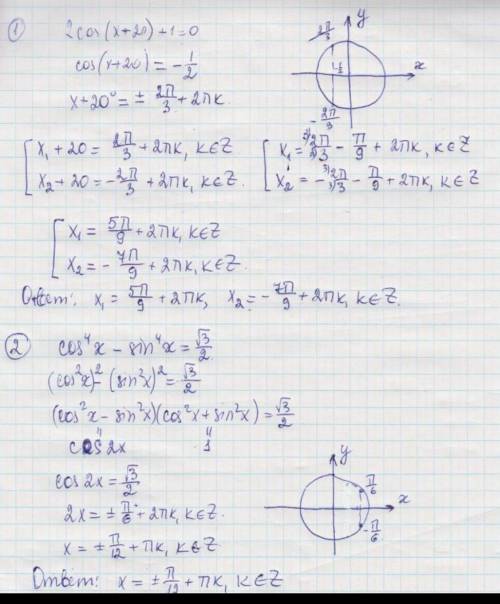 1) 2cos(x+20)+1=0
cos(x+20)=-1/2
x+20°=± 2π/3+2πk.
2π/3
y
x
-1/2
-2π/3
[ x₁+20= 2π/3+2πk, k∈Z
x₂+20=-2π/3+2πk, k∈Z.
[ x₁= ³⁾2π/³⁾3 - π/9 + 2πk, k∈Z
x₂ = - ³⁾2π/³⁾3 - π/9 + 2πk, k∈Z
[ x₁= 5π/9+2πk, k∈Z
x₂=- 7π/9+2πk, k∈Z.
Ответ: x₁= 5π/9+2πk, x₂=- 7π/9+2πk, k∈Z.
2) cos⁴x-sin⁴x=√3/2.
(cos²x)²-(sin²x)²=√3/2
(cos²x-sin²x)(cos²x+sin²x)=√3/2
" "
cos2x 1
cos2x=√3/2
2x=± π/6+2πk, k∈Z.
x=± π/12+πk, k∈Z
y
π/6
x
-π/6
Ответ: x=± π/12+πk, k∈Z